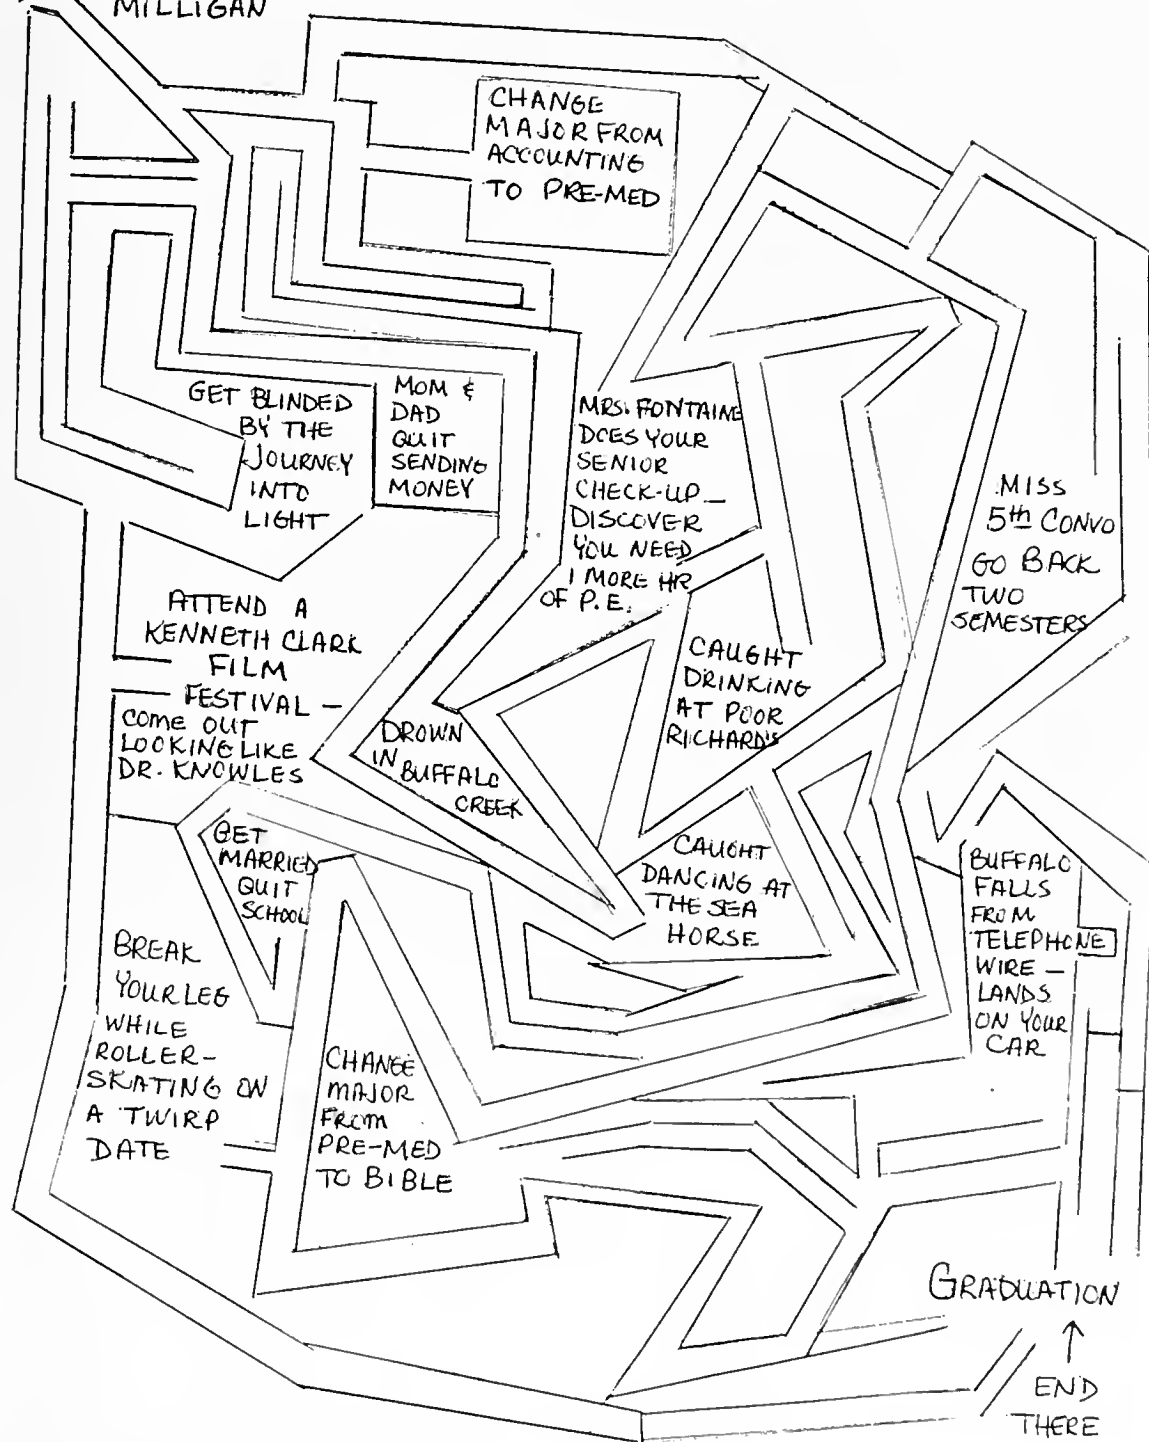 MILLIGAN
CHANGE
MAJOR FROM
ACCOUNTING
TO PRE-MED
GET BLINDED
BY THE
JOURNEY
INTO
LIGHT
MOM &
DAD
QUIT
SENDING
MONEY
MRS. FONTAINE
DOES YOUR
SENIOR
CHECK-UP —
DISCOVER
YOU NEED
1 MORE HR
OF P.E.
MISS
5th CONVO
GO BACK
TWO
SEMESTERS
ATTEND A
KENNETH CLARK
FILM
FESTIVAL —
COME OUT
LOOKING LIKE
DR. KNOWLES
DROWN
IN BUFFALO
CREEK
CAUGHT
DRINKING
AT POOR
RICHARD'S
GET
MARRIED
QUIT
SCHOOL
CAUGHT
DANCING AT
THE SEA
HORSE
BUFFALO
FALLS
FROM
TELEPHONE
WIRE —
LANDS
ON YOUR
CAR
BREAK
YOUR LEG
WHILE
ROLLER-
SKATING ON
A TWIRP
DATE
CHANGE
MAJOR
FROM
PRE-MED
TO BIBLE
GRADUATION
↑
END
THERE